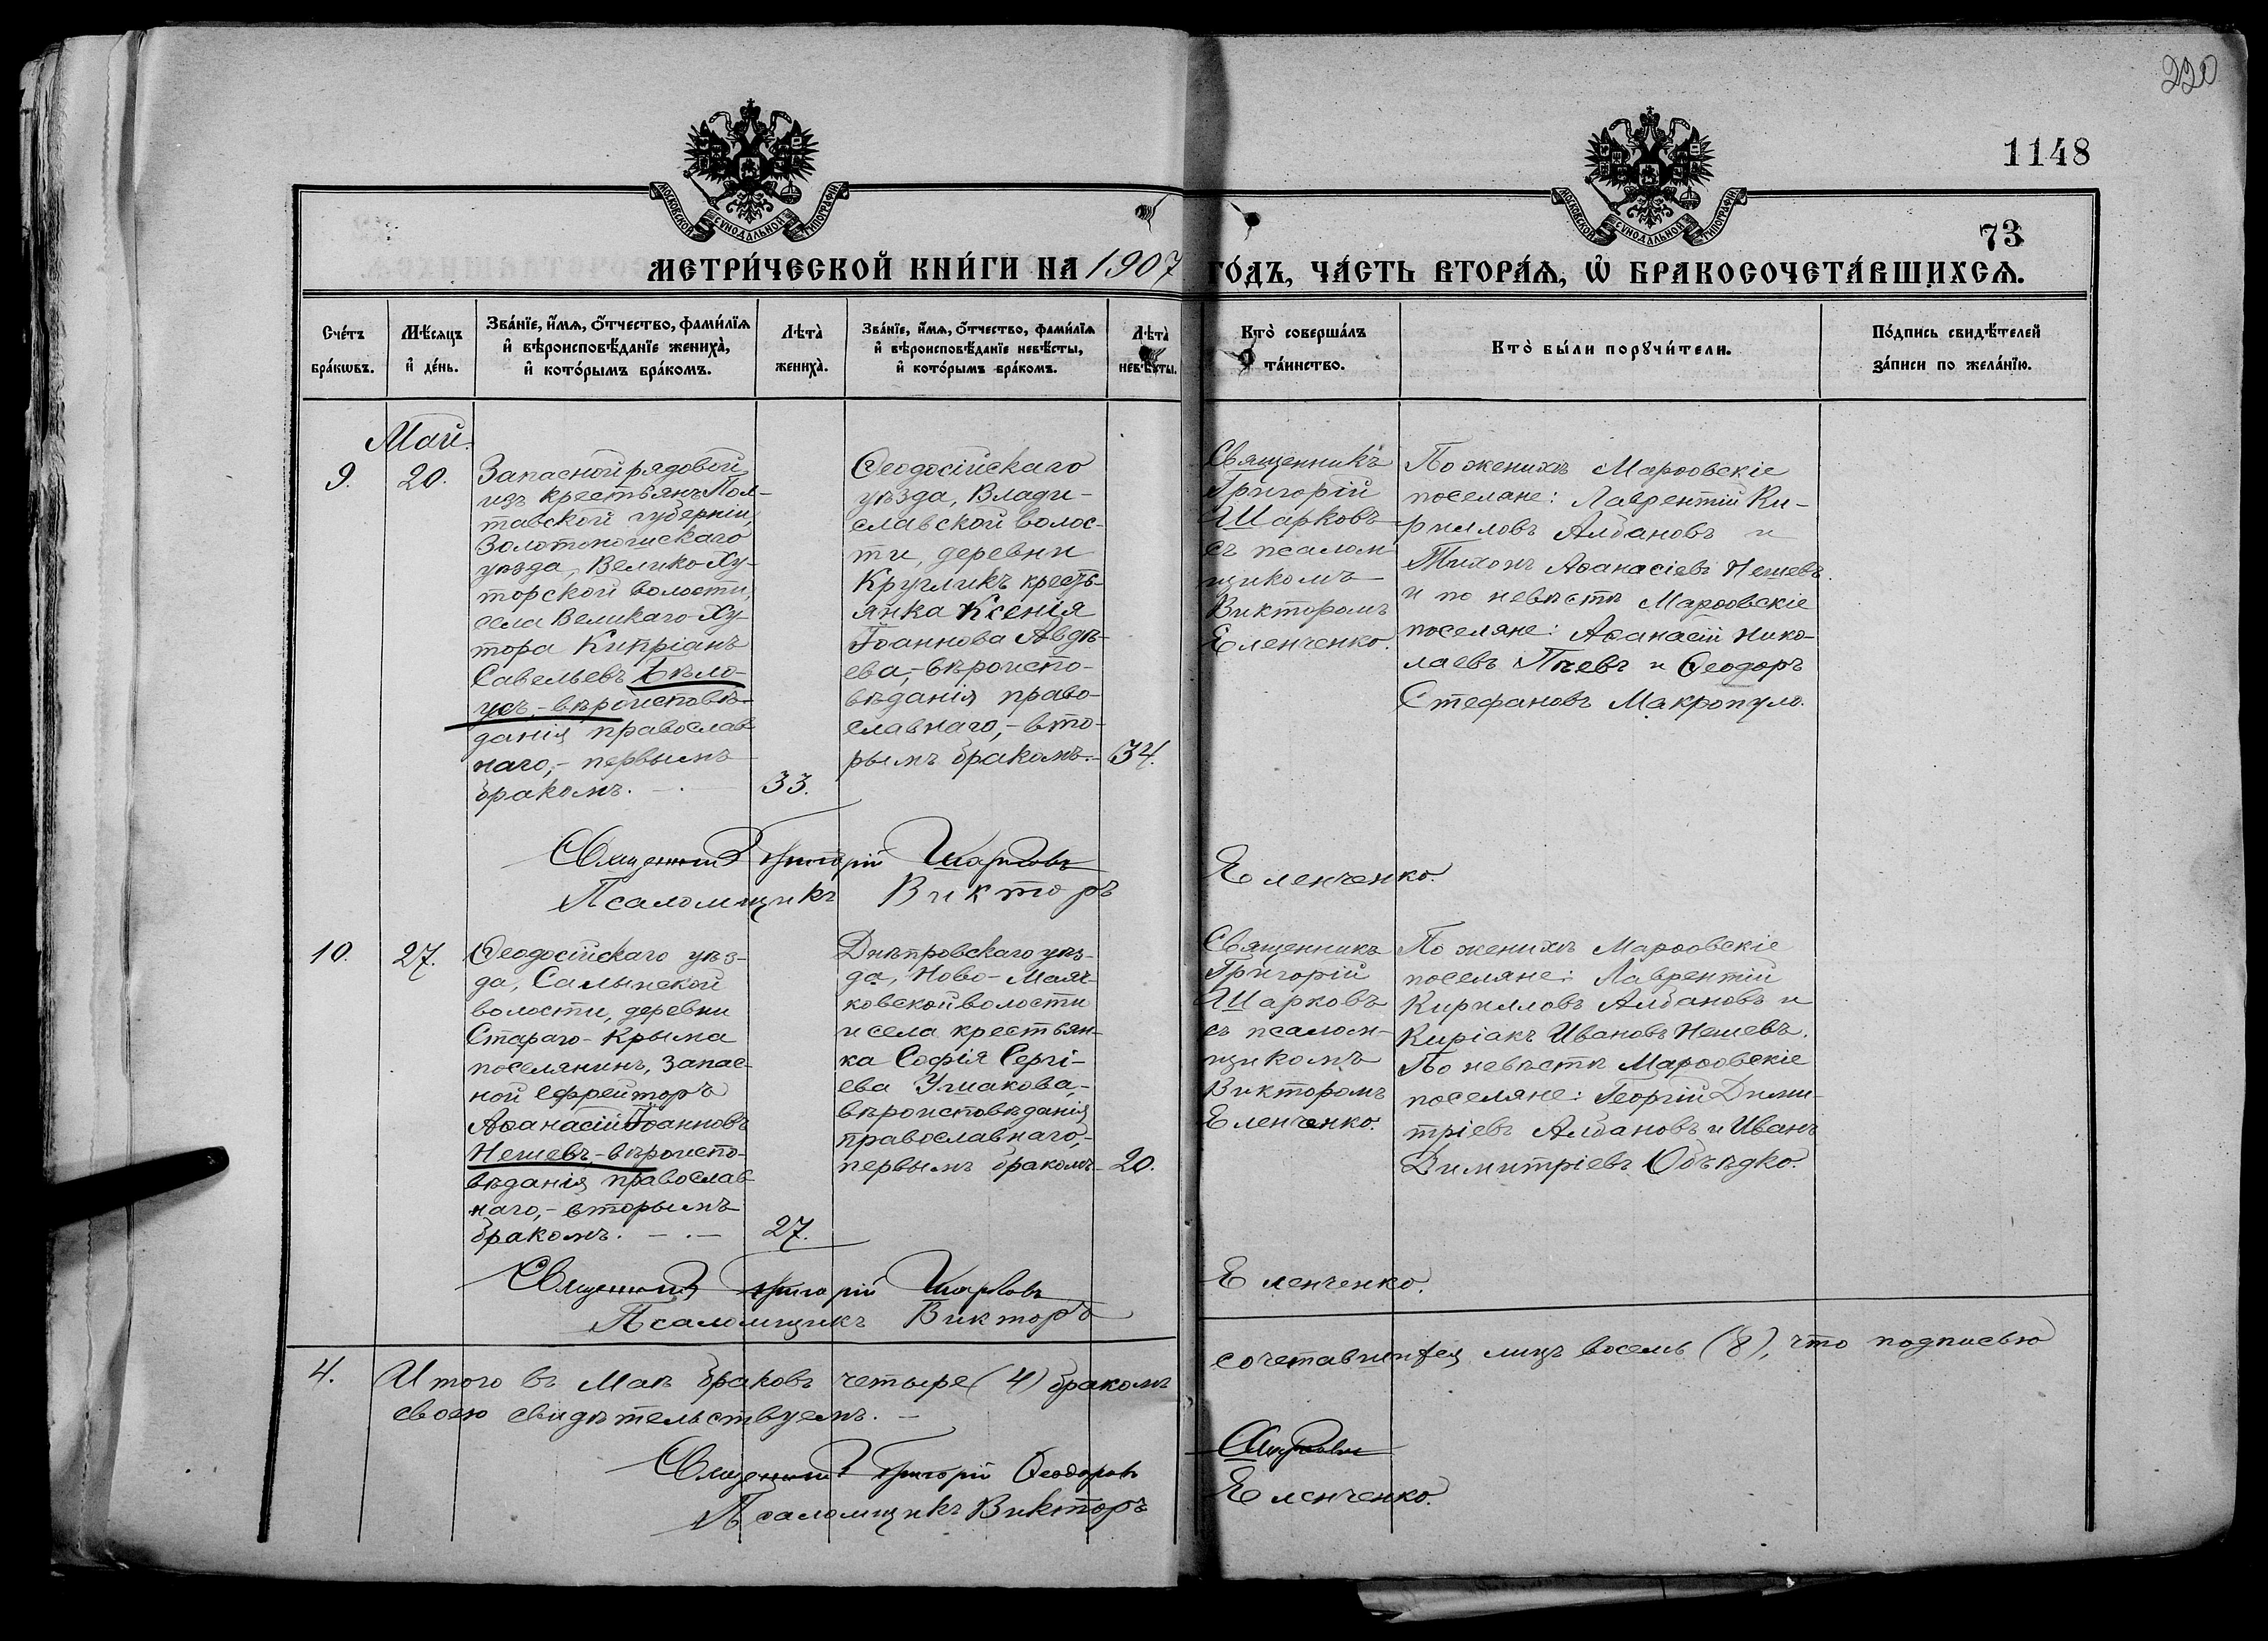 220
1148
73
МОСКОВСКОЙ СѴНОДАЛЬНОЙ ТИПОГРАФІИ
МОСКОВСКОЙ СѴНОДАЛЬНОЙ ТИПОГРАФІИ
МЕТРИ́ЧЕСКОЙ КНИ́ГИ НА 1907 ГО́ДЪ, ЧА́СТЬ ВТОРА́Ѧ, Ѽ БРАКОСОЧЕТА́ВШИХСѦ.
Сче́тъ
бра́кѡвъ.
Мѣ́сяцъ
и҆ де́нь.
Зва́нїе, и҆́мѧ, ѻ҆́тчество, фами́лїѧ
и҆ вѣроисповѣ́данїе жениха̀,
и҆ кото́рымъ бра́комъ.
Лѣта̀
жениха̀.
Зва́нїе, и҆́мѧ, ѻ҆́тчество, фами́лїѧ
и҆ вѣроисповѣ́данїе невѣ́сты,
и҆ кото́рымъ бра́комъ.
Лѣта̀
невѣ́сты.
Кто̀ соверша́лъ
та́инство.
Кто̀ бы́ли порꙋчи́тели.
По́дпись свидѣ́телей
за́писи по жела́нїю.
Май.
9.
20.
Запасной рядовой
изъ крестьянъ Пол-
тавской губерніи,
Золотоношскаго
уѣзда, Велико-Ху-
торской волости,
села Великаго-Ху-
тора Кипріанъ
Савельевъ Бѣло-
усъ,-вѣроисповѣ-
данія православ-
наго,- первымъ
бракомъ. - . -
33.
Ѳеодосійскаго
уѣзда, Влади-
славской волос-
ти, деревни
Кругликъ кресть-
янка Ксенія
Іоаннова Авдѣ-
ева,- вѣроиспо-
вѣданія право-
славнаго,- вто-
рымъ бракомъ.-
34.
Священникъ
Григорій
Шарковъ
съ псалом-
щикомъ
Викторомъ
Еленченко.
По женихѣ Марѳовскіе
поселяне: Лаврентій Ки-
рилловъ Албановъ и
Тихонъ Аѳанасіевъ Нешевъ.
и по невѣстѣ Марѳовскіе
поселяне: Аѳанасій Нико-
лаевъ Пчевъ и Ѳеодоръ
Стефановъ Макропуло.
Священникъ Григорій Шарковъ
Псаломщикъ Викторъ Еленченко.
10.
27.
Ѳеодосійскаго уѣз-
да, Салынской
волости, деревни
Стараго-Крыма
поселянинъ, запас-
ной ефрейторъ
Аѳанасій Іоанновъ
Нешевъ,-вѣроиспо-
вѣданія православ-
наго,- вторымъ
бракомъ. - . -
27.
Днѣпровскаго уѣз-
да, Ново-Маяч-
ковской волости
и села крестьян-
ка Софія Сергі-
ева Ушакова,-
вѣроисповѣданія
православнаго,-
первымъ бракомъ-
20.
Священникъ
Григорій
Шарковъ
съ псалом-
щикомъ
Викторомъ
Еленченко.
По женихѣ Марѳовскіе
поселяне: Лаврентій
Кирилловъ Албановъ и
Киріакъ Ивановъ Нешевъ.
По невѣстѣ Марѳовскіе
поселяне: Георгій Дими-
тріевъ Албановъ и Иванъ
Димитріевъ Объѣдко.
Священникъ Григорій Шарковъ
Псаломщикъ Викторъ Еленченко.
4.
Итого въ Маѣ браковъ четыре (4) бракомъ сочетавшихся лицъ восемь (8), что подписью
своею свидѣтельствуемъ. -
Священникъ Григорій Ѳеодоровъ Шарковъ
Псаломщикъ Викторъ Еленченко.